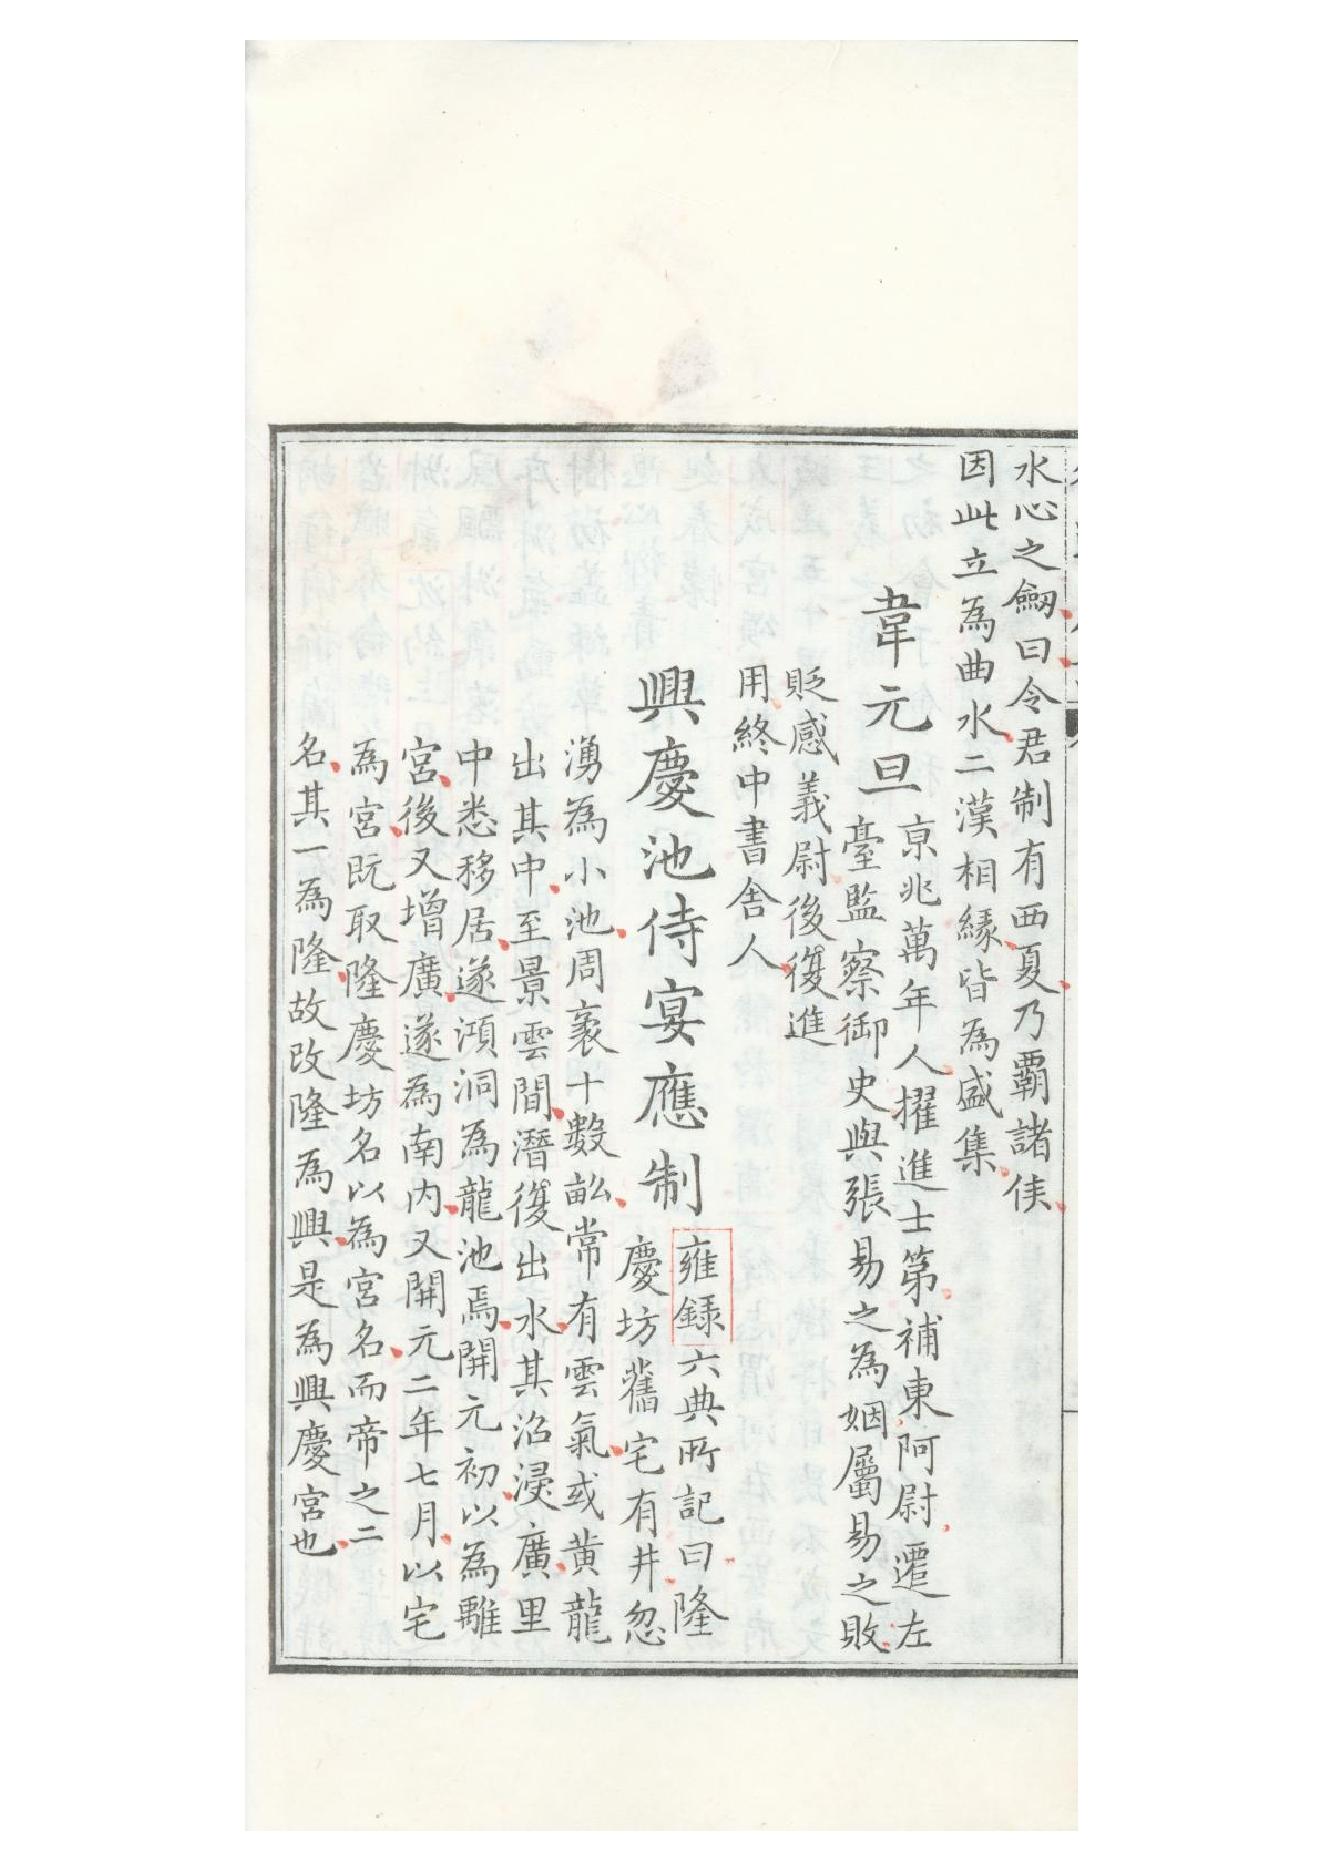 水心之劒曰令君制有西夏乃霸諸侯
因此立為曲水二漢相緣皆為盛集
韋元旦
京兆萬年人擢進士第補東阿尉遷左
臺監察御史與張易之為姻屬易之敗
貶感義尉後復進
用終中書舍人
興慶池侍宴應制
雍録六典所記曰隆
慶坊舊宅有井忽
湧為小池周袤十數畝常有雲氣或黄龍
出其中至景雲間潛復出水其沿浸廣里
中悉移居遂澒洞為龍池焉開元初以為離
宮後又增廣遂為南内又開元二年七月以宅
為宮既取隆慶坊名以為宮名而帝之二
名其一為隆故改隆為興是為興慶宮也